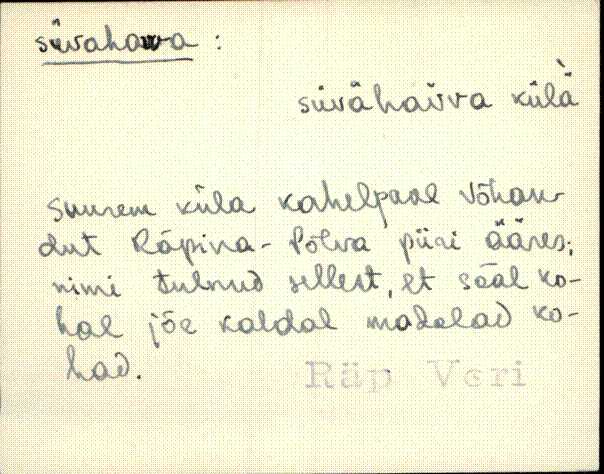 süvahavva :
süvähavva külä
suurem küla kahelpool Võhan-
dut Räpina - Põlva piiri ääres;
nimi tulnud sellest, et sääl ko-
hal jõe kaldal madalad ko-
had.
Räp Veri